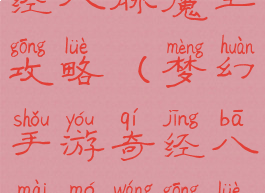 经八脉魔王
gōng lüè mèng huàn
攻略（梦幻
shǒu yóu qí jīng bā
手游奇经八
mài mó wáng gōng lüè